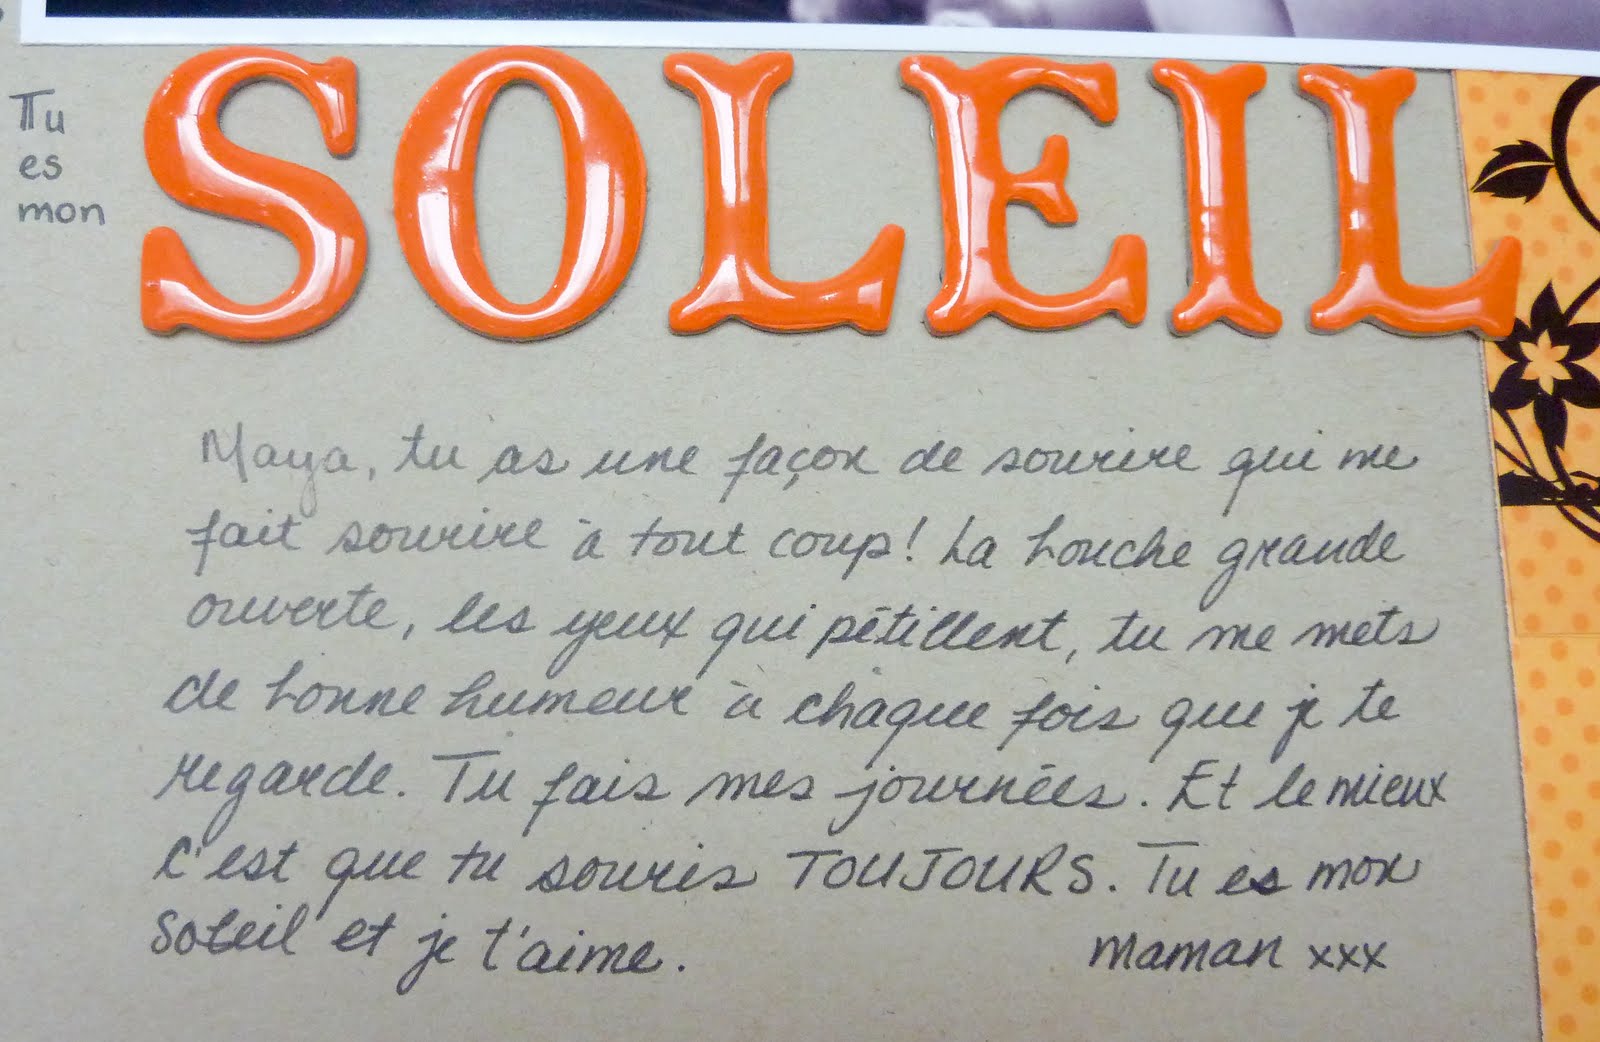 Tu
es
mon
SOLEIL
Maya, tu as une façon de sourire qui me
fait sourire à tout coup! La bouche grande
ouverte, les yeux qui pétillent, tu me mets
de bonne humeur à chaque fois que je te
regarde. Tu fais mes journées. Et le mieux
c'est que tu souris TOUJOURS. Tu es mon
soleil et je t'aime.
maman xxx